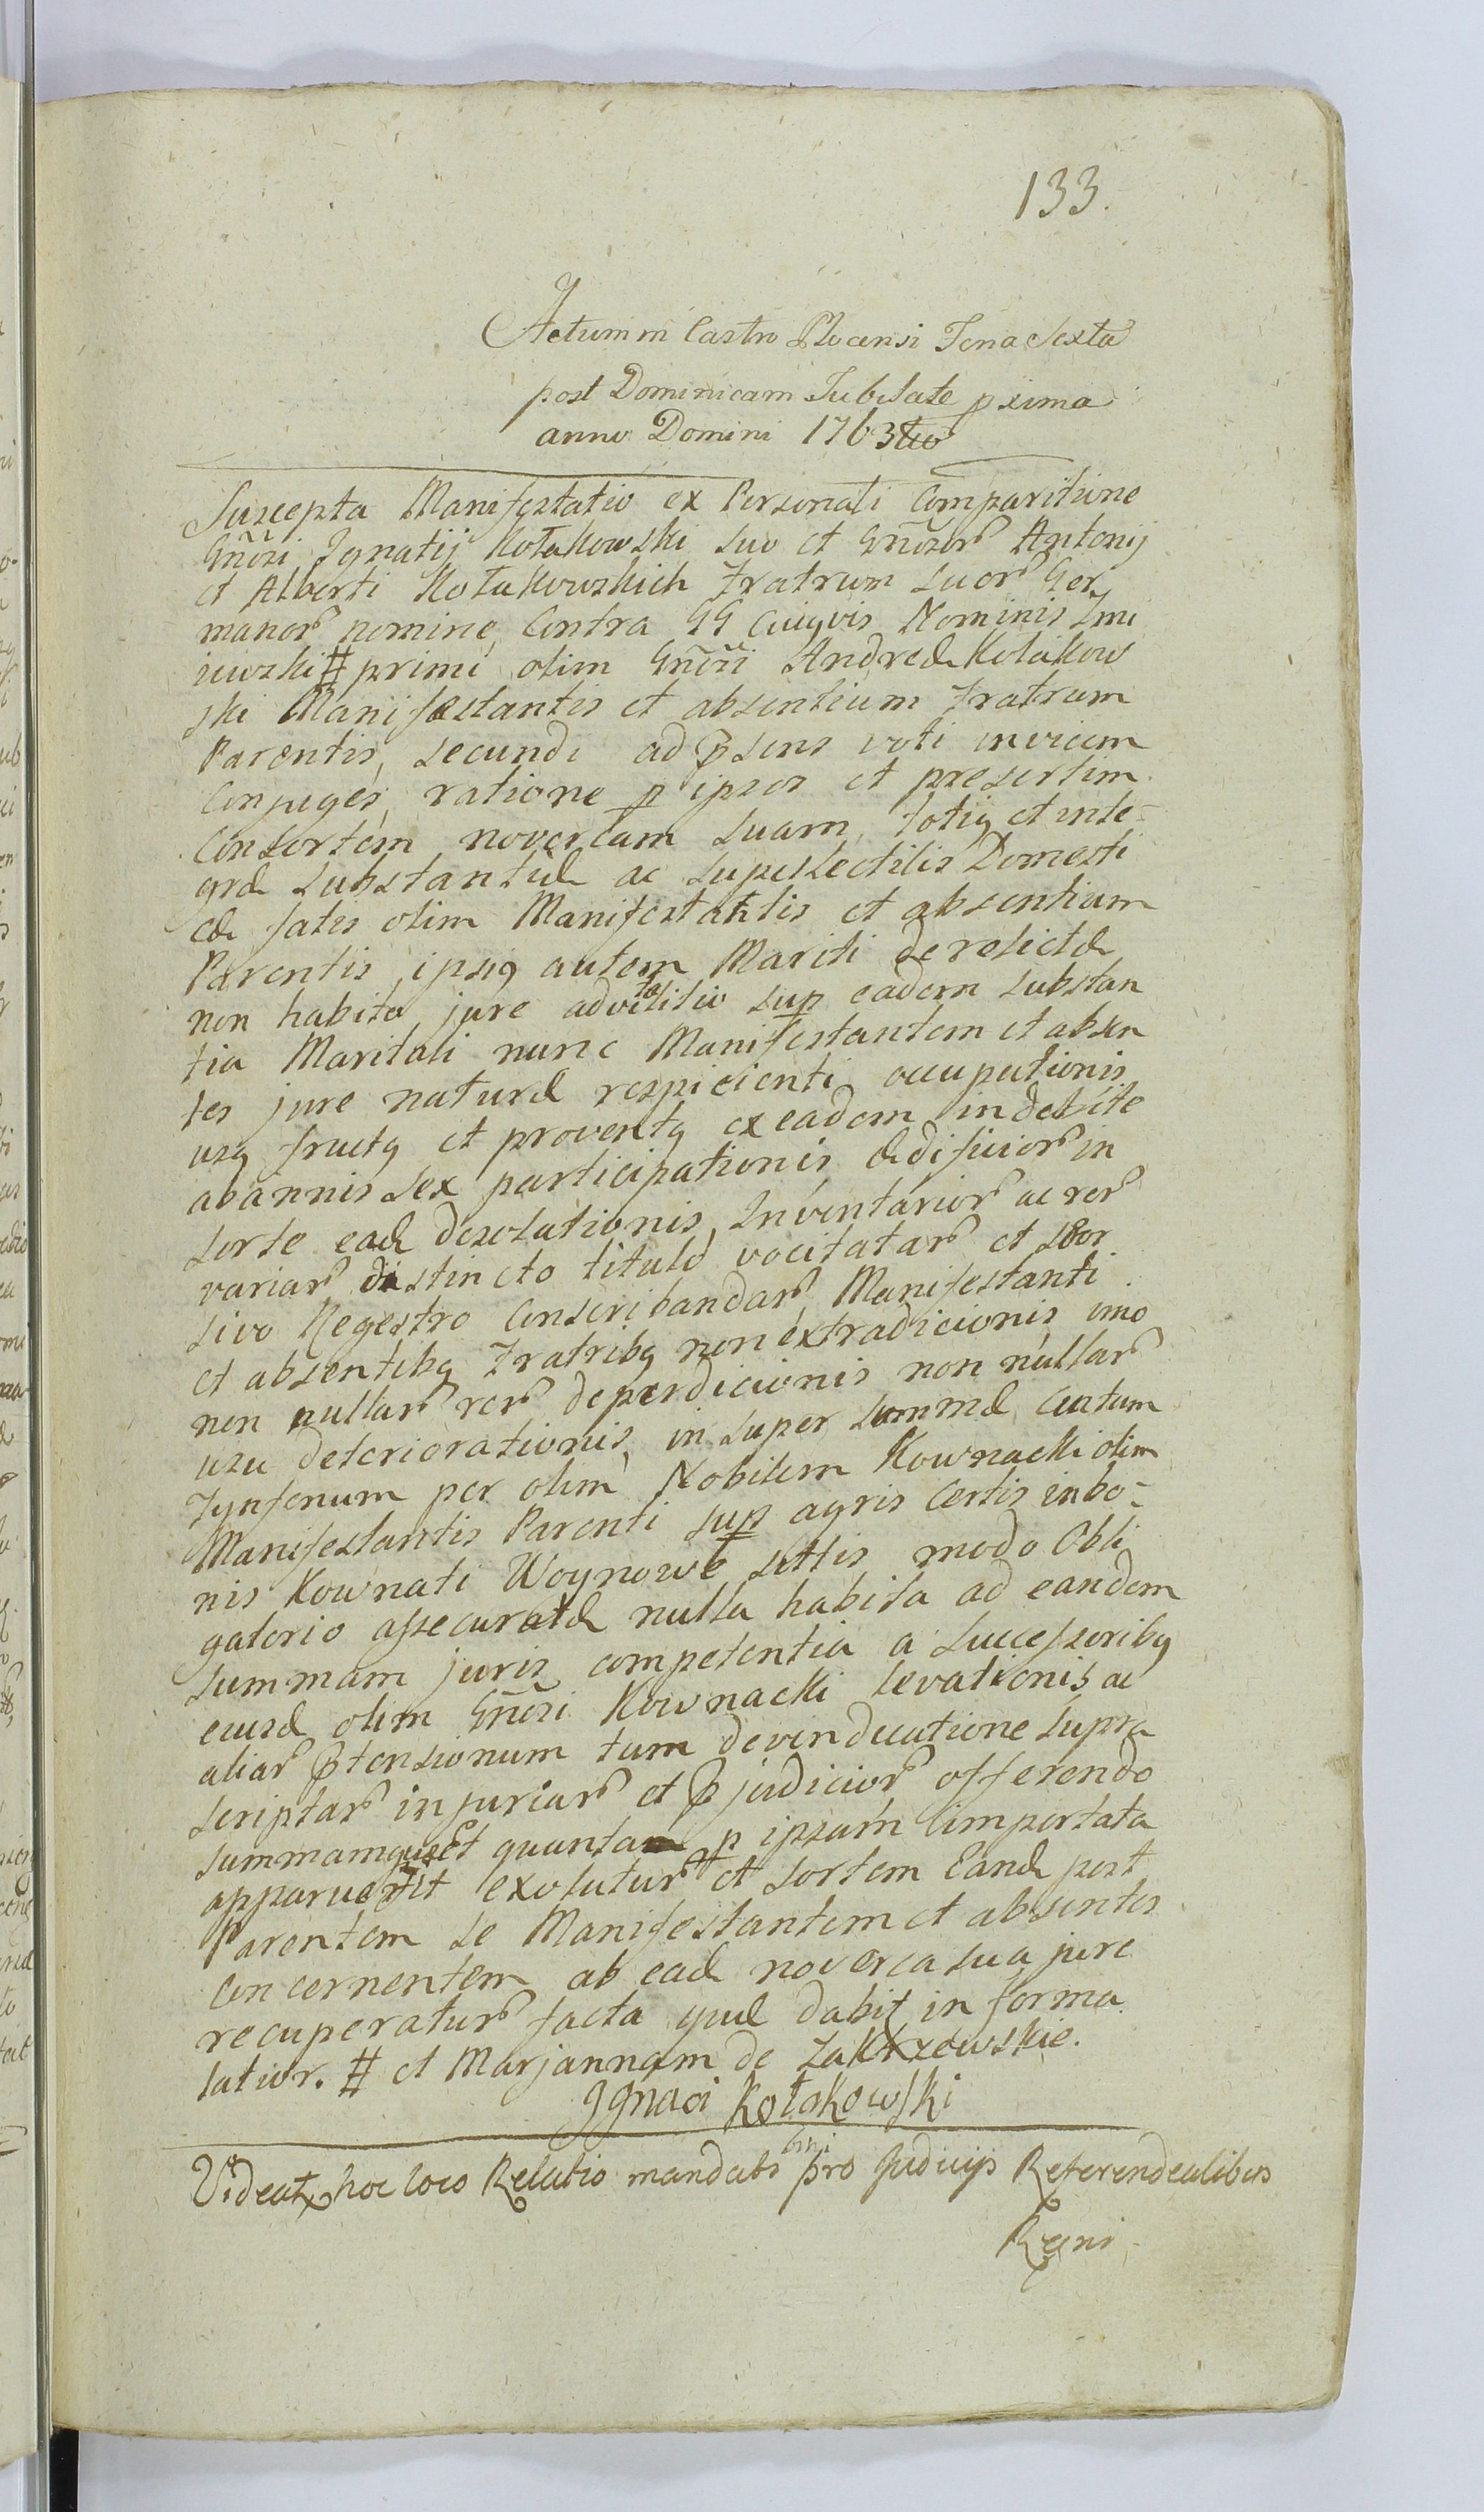 133.
Actum in Castro Plocensi Feria Sexta
post Dominicam Jubilate pxima
anno Domini 1763tio
Suscepta Manifestatio ex Personali Comparitione
Gñosi Ignatij Kołakowski suo et Gñosor Antonij
et Alberti Kołakowskich Fratrum suor Ger
manor nomine, Contra GG Cuiqvis Nominis Zmi
iewski # primi olim Gñosi Andreæ Kołakow
ski Manifestantis et absentium Fratrum
Parentis, secundi ad psens voti invicem
Conjuges, ratione p ipsos et presertim
Consortem novercam suam, totiq et inte-
græ substantiæ ac supellectilis Domesti
cæ fatis olim Manifestantis et absentium
Parentis, ipsiq autem Mariti derelictæ
non habito jure advitalitio sup eadem substan
tia Maritali nunc Manifestantem et absen
tes jure naturæ respicienti occupationis
usq fructq et proventq ex eadem indebite
ab annis sex participationis ædificior in
sorte eadæ desolationis, Inventarior ac rer
variar distincto titulo vocitatar et seor
sivo Regestro Conscribandar Manifestanti
et absentibq Fratribq non extradicionis imo
non nullar rer deperdicionis non nullar
usu deteriorationis, in super summæ centum
Tynfonum per olim Nobilem Kownacki olim
Manifestantis Parenti sup agris certis in bo-
nis Kownati Woynowe sittis modo Obli
gatorio assecuratæ nulla habita ad eandem
summam juris competentia a successoribq
eiusd olim Gñosi Kownacki levationis ac
aliar ptensionum tum de vindicatione supra
scriptar injuriar et pjudicior offerendo
summamque et quanta p ipsam importata
apparuerit exolutur et sortem Eandæ post
Parentem se Manifestantem et absentes
concernentem ab eadæ noverca sua jure
recuperatur facta quæ dabit in forma
latior. # et Marjannam de Zakrzewskie.
Ignaci Kołakowski
Videatx hoc loco Relatio mandati bini pro Judicijs Referendealibus
Regni